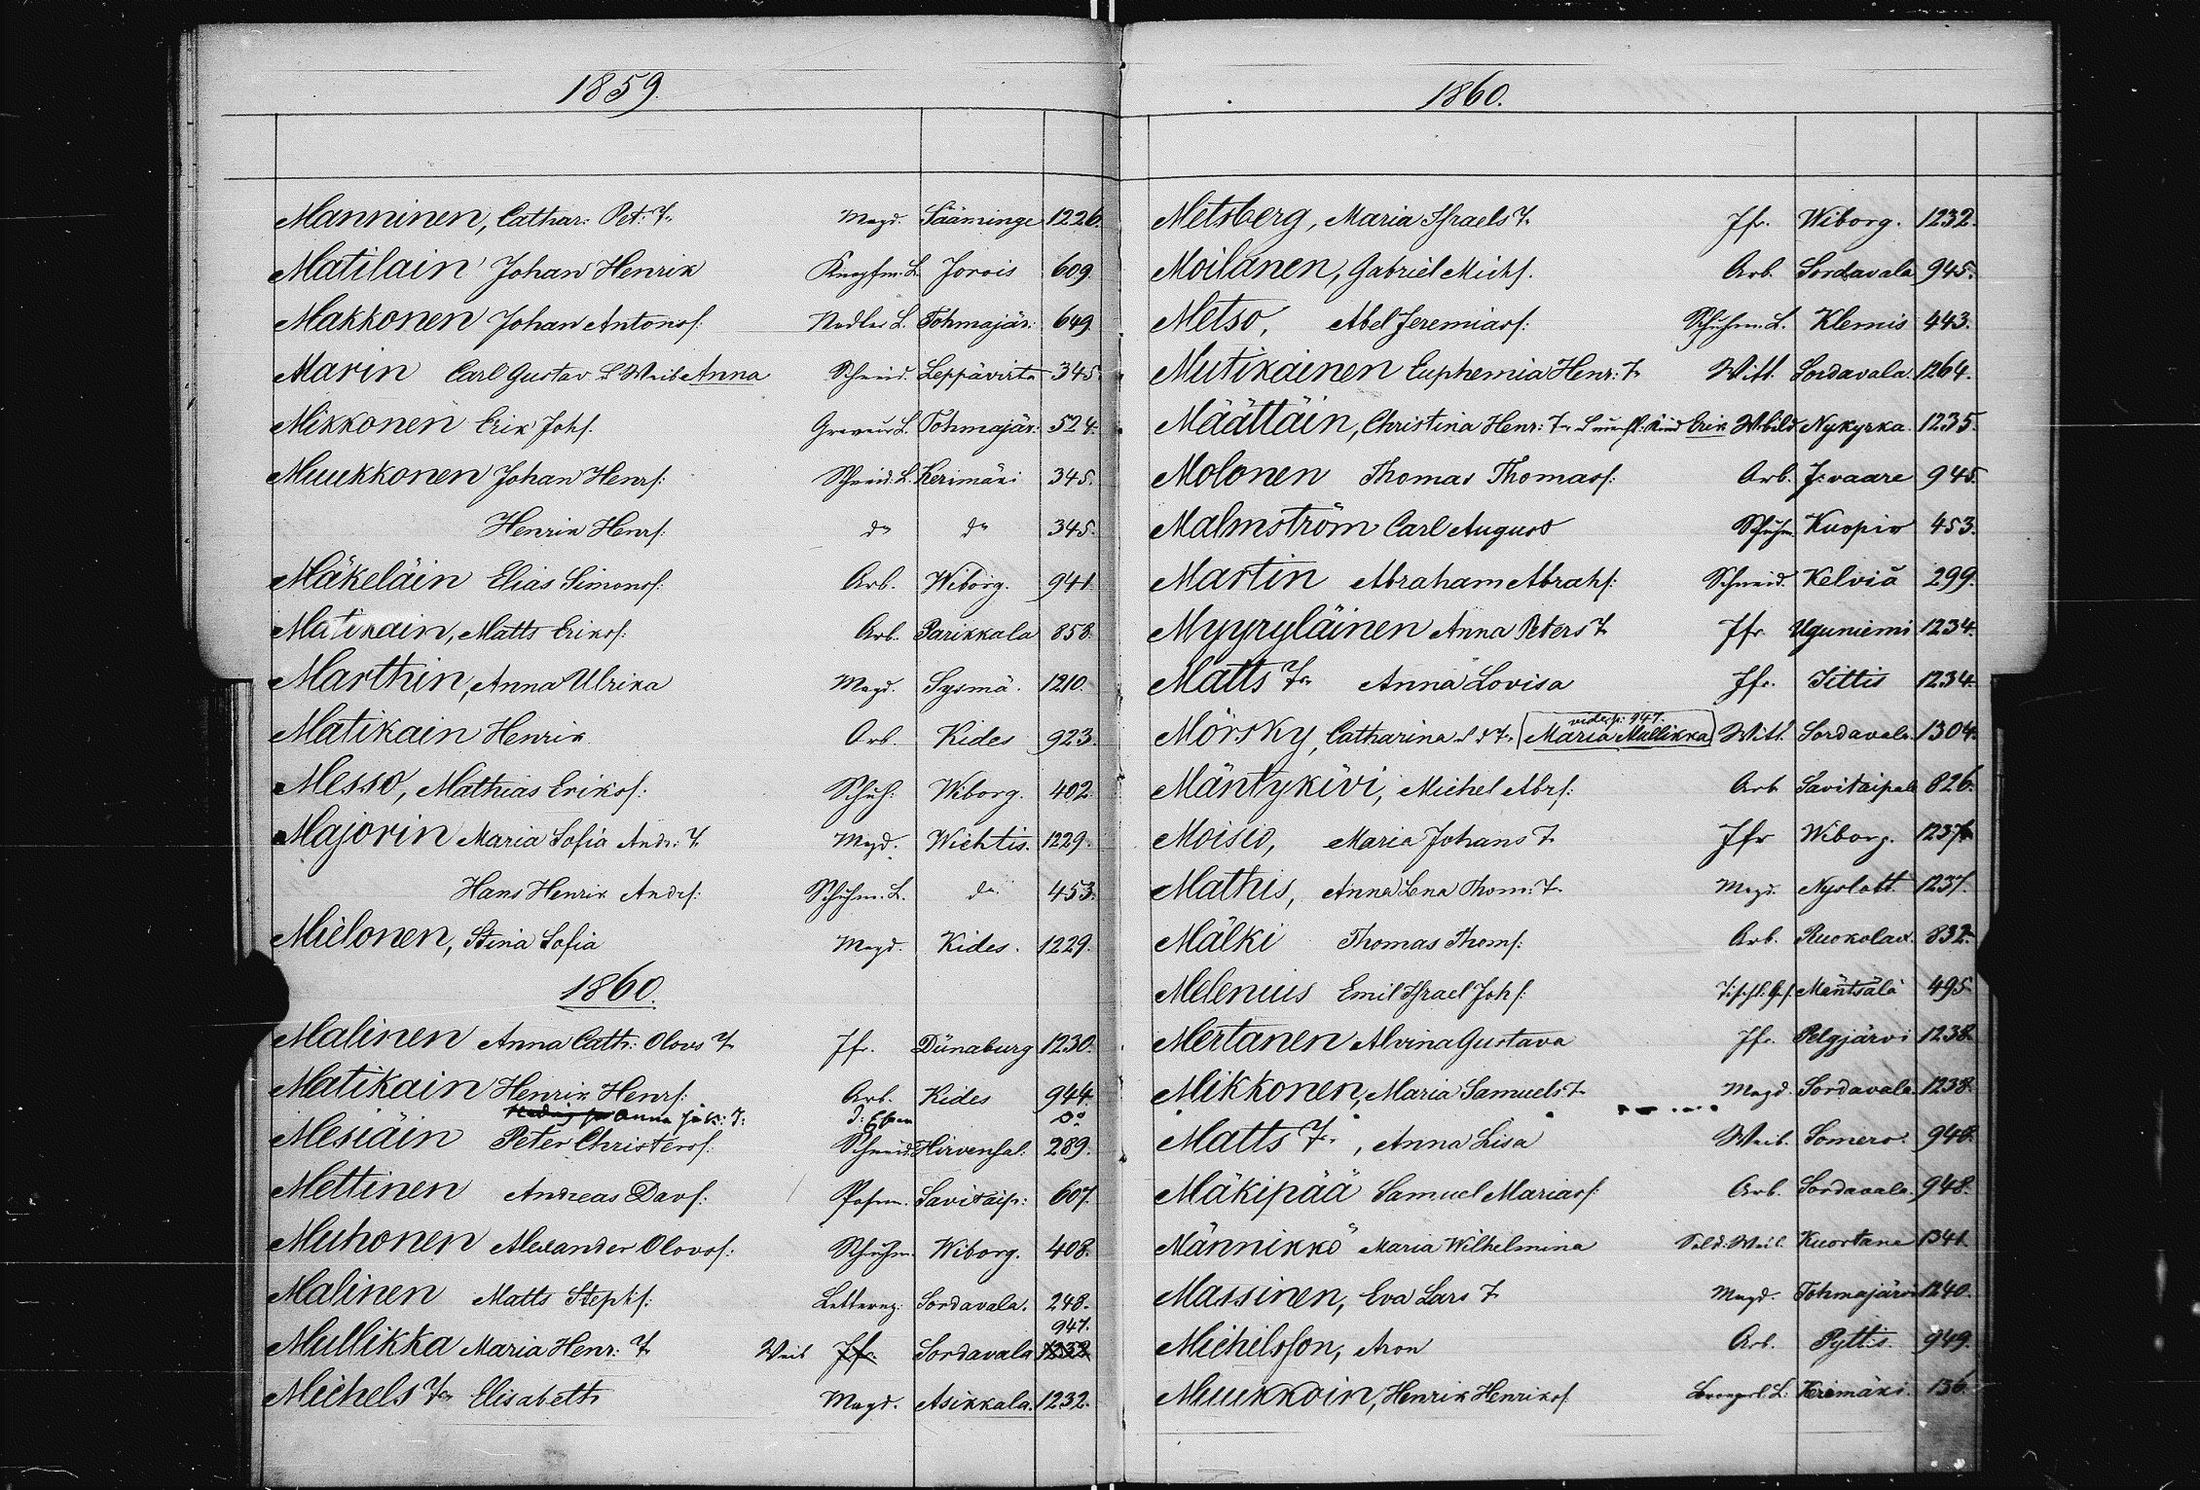 1859.
Manninen, Cathar: Pet: T. Magd. Sääminge 1226.
Matilain Johan Henrik Knopfm. L. Jorois 609.
Makkonen Johan Antonsf: Nadler L. Tohmajär: 649.
Marin Carl Gustav & Weib Anna Schneid. Leppävirta 345.
Mikkonen Erik Johsf. Graveur L. Tohmajär: 524.
Muukkonen Johan Henrsf: Schneid. L. Kerimäki 345.
Henrik Henrsf: do do 345.
Mäkeläin Elias Simonsf: Arb. Wiborg. 941.
Matikain, Matts Eriksf: Arb. Parikkala 858.
Marthin, Anna Ulrika Magd. Sysmä. 1210.
Matikain Henrik Arb. Kides 923.
Messo, Mathias Eriksf: Schuh: Wiborg. 402.
Majorin Maria Sofia Andr: T. Magd. Wichtis. 1229.
Hans Henrik Andsf: Schuhm. L. do 453.
Mielonen, Stina Sofia Magd. Kides. 1229.
1860.
Malinen Anna Cath: Olovs T. Jfr. Dünaburg 1230.
Matikain Henrik Henrsf: Arb. Kides 944.
Anna
Mesiäin Peter Christersf: Schneid. Hirvensal: 289.
Mettinen Andreas Davsf: Posam. Savitaip: 607.
Muhonen Alexander Olovsf: Schuhm. Wiborg. 408.
Malinen Matts Stephsf: Sordavala. 248.
947.
Mullikka Maria Henr: T. Weib Jfr. Sordavala 1232.
Michels Tr. Elisabeth Magd. Asikkala. 1232.
1860.
Metsberg, Maria Israels T. Jfr. Wiborg. 1232.
Moilanen, Gabriel Michsf. Arb. Sordavala 945.
Metso, Abel Jeremiasf: Schuhm. L. Klemis 443.
Mutikainen Euphemia Henr: T. Witt. Sordavala. 1264.
Määttäin, Christina Henr: T. & Kind Erik Nykyrka. 1235.
Molonen Thomas Thomasf: Arb. J:vaara 945.
Malmström Carl August Schuhm. Kuopio 453.
Martin Abraham Abrahsf: Schneid. Kelviå 299.
Myyryläinen Anna Peters T. Jfr. Uguniemi 1234.
Matts Tr. Anna Lovisa Jfr. Sittis 1234.
vide p: 947.
Mörsky, Catharina & d. T. Maria Mullikka Witt. Sordavala. 1304.
Mäntykivi, Michel Abrsf: Arb. Savitaipale 826.
Moisio, Maria Johans T. Jfr Wiborg. 1237.
Mathis, Anna Lena Thom: T. Magd. Nyslott. 1237.
Mälki Thomas Thomsf: Arb. Ruokolax. 832.
Melenius Emil Israel Johsf: Mäntsälä 495.
Mertanen Alvina Gustava Jfr. Pelgjärvi 1238.
Mikkonen, Maria Samuels T. Magd. Sordavala 1238.
Matts Tr., Anna Lisa Weib. Somero. 948.
Mäkipää Samuel Mariasf: Arb. Sordavala. 948.
Männikkö Maria Wilhelmina Sold: Weib. Kuortane 1341.
Massinen, Eva Lars T. Magd. Tohmajärvi 1240.
Michelsson, Aron Arb. Pyttis. 949.
Muukkoin, Henrik Henriksf. Kerimäki. 136.